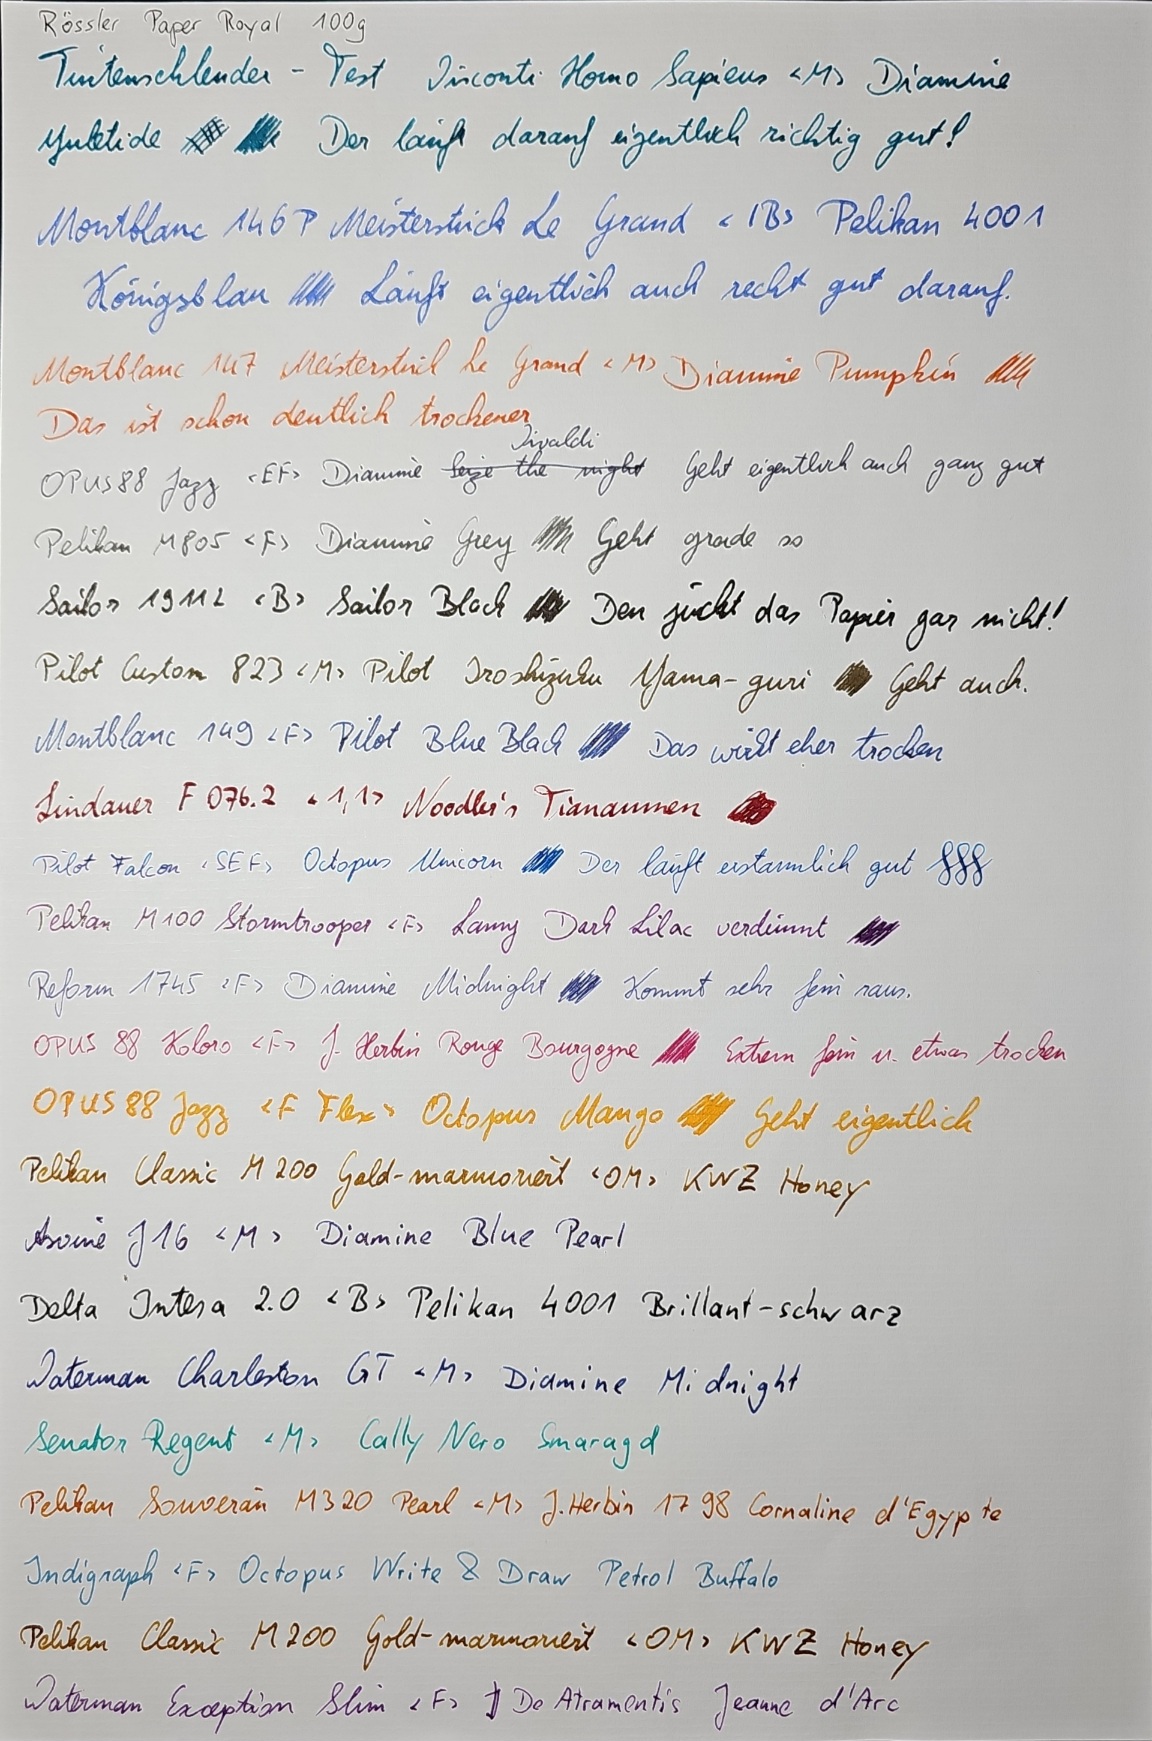 Rössler Paper Royal 100g
Tintenschlender - Test Visconti Homo Sapiens <M> Diamine
Yuletide Der läuft darauf eigentlich richtig gut!
Montblanc 146 P Meisterstück Le Grand <IB> Pelikan 4001
Königsblau Läuft eigentlich auch recht gut darauf.
Montblanc 147 Meisterstück Le Grand <M> Diamine Pumpkin
Das ist schon deutlich trockener
Vivaldi
OPUS 88 Jazz <EF> Diamine Seize the night Geht eigentlich auch ganz gut
Pelikan M805 <F> Diamine Grey Geht grade so
Sailor 1911L <B> Sailor Black Den juckt das Papier gar nicht!
Pilot Custom 823 <M> Pilot Iroshizuku Yama-guri Geht auch.
Montblanc 149 <F> Pilot Blue Black Das wirkt eher trocken
Lindauer F 076.2 <1,1> Noodler's Tiananmen
Pilot Falcon <SEF> Octopus Unicorn Der läuft erstaunlich gut §§§
Pelikan M100 Stormtrooper <F> Lamy Dark Lilac verdünnt
Reform 1745 <F> Diamine Midnight Kommt sehr fein raus.
OPUS 88 Koloro <F> J. Herbin Rouge Bourgogne Extrem fein u. etwas trocken
OPUS 88 Jazz <F Flex> Octopus Mango Geht eigentlich
Pelikan Classic M200 Gold-marmoriert <OM> KWZ Honey
Asvine J16 <M> Diamine Blue Pearl
Delta Intesa 2.0 <B> Pelikan 4001 Brillant-schwarz
Waterman Charleston GT <M> Diamine Midnight
Senator Regent <M> Cally Nero Smaragd
Pelikan Souverän M320 Pearl <M> J.Herbin 1798 Cornaline d'Egypte
Indigraph <F> Octopus Write & Draw Petrol Buffalo
Pelikan Classic M200 Gold-marmoriert <OM> KWZ Honey
Waterman Exception Slim <F> De Atramentis Jeanne d'Arc